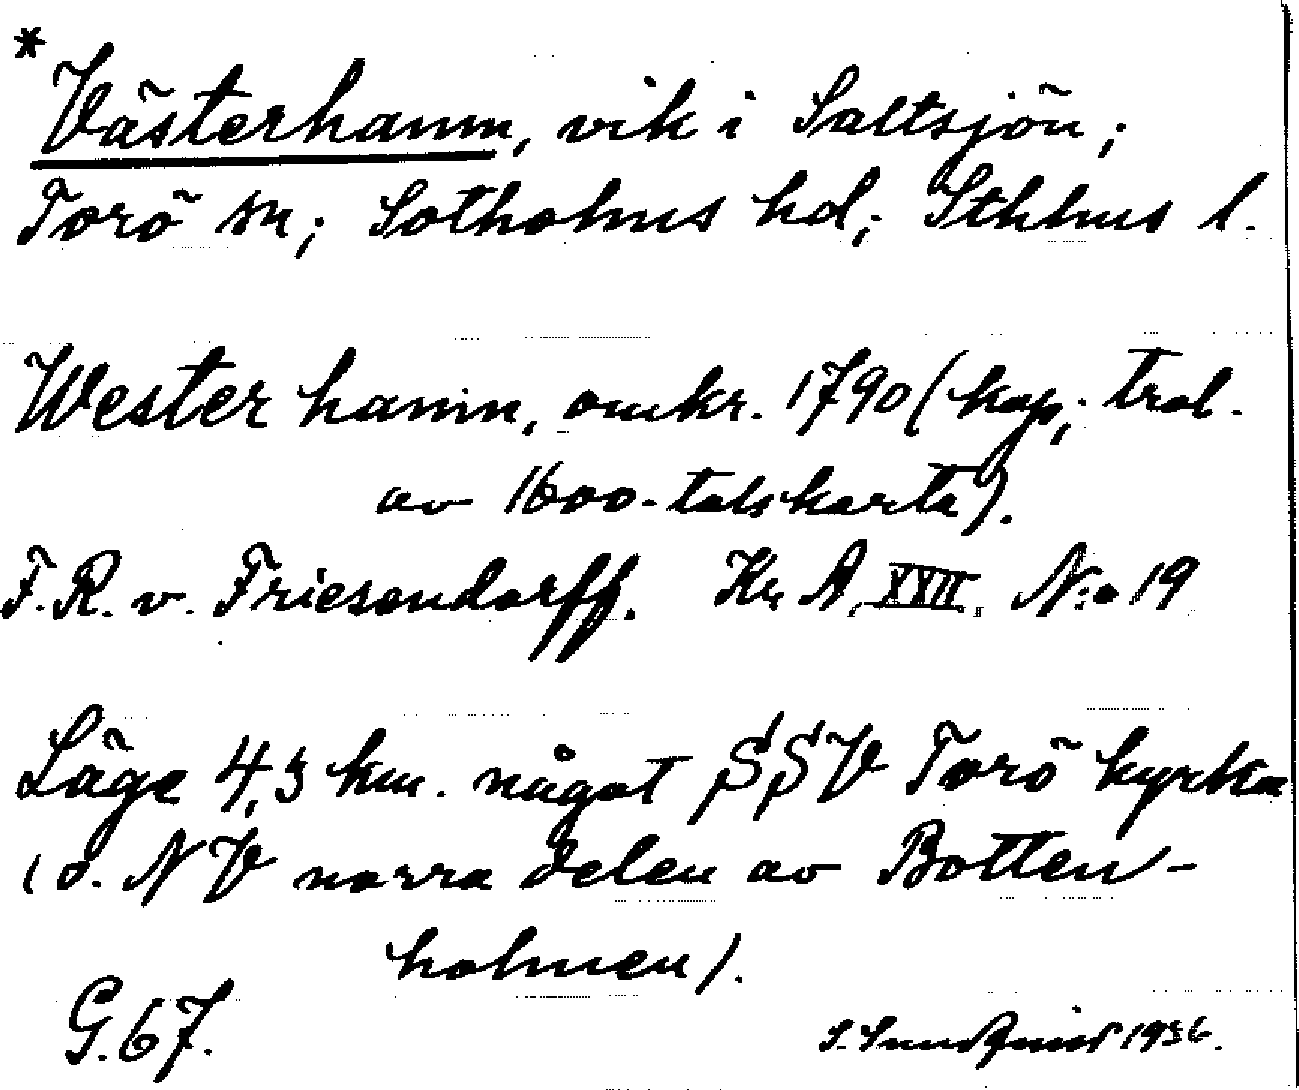 * Västerhamn, vik i Saltsjön;
Torö sn; Sotholms hd; Sthlms l.
Wester hamn, omkr. 1790 (kop; trol.
av 1600-talskarta).
F. R. v. Friesendorff. Kr A XXII N:o 19
Läge 4,3 km. något SSV Torö kyrka
(o. NV norra delen av Botten-
holmen).
G. 67.
S. Sundquist 1936.